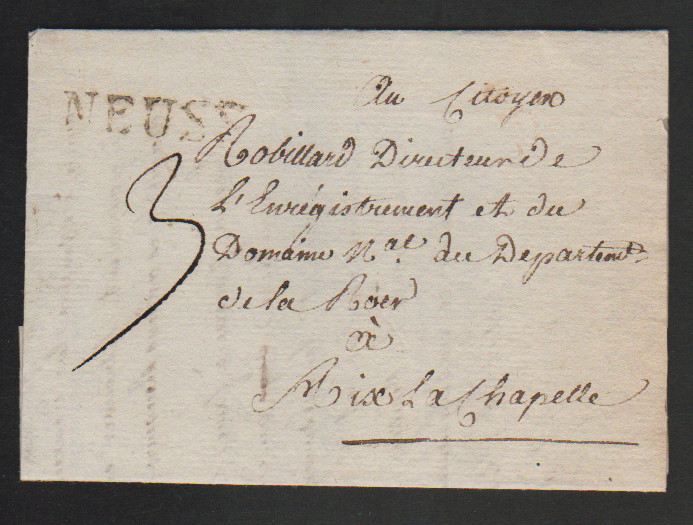 NEUSS
Au Citoyen
Robillard Directeur de
L'Enrégistrement et du
Domaine Nal. du Departemt.
de la Roer
à
Aix La Chapelle
3